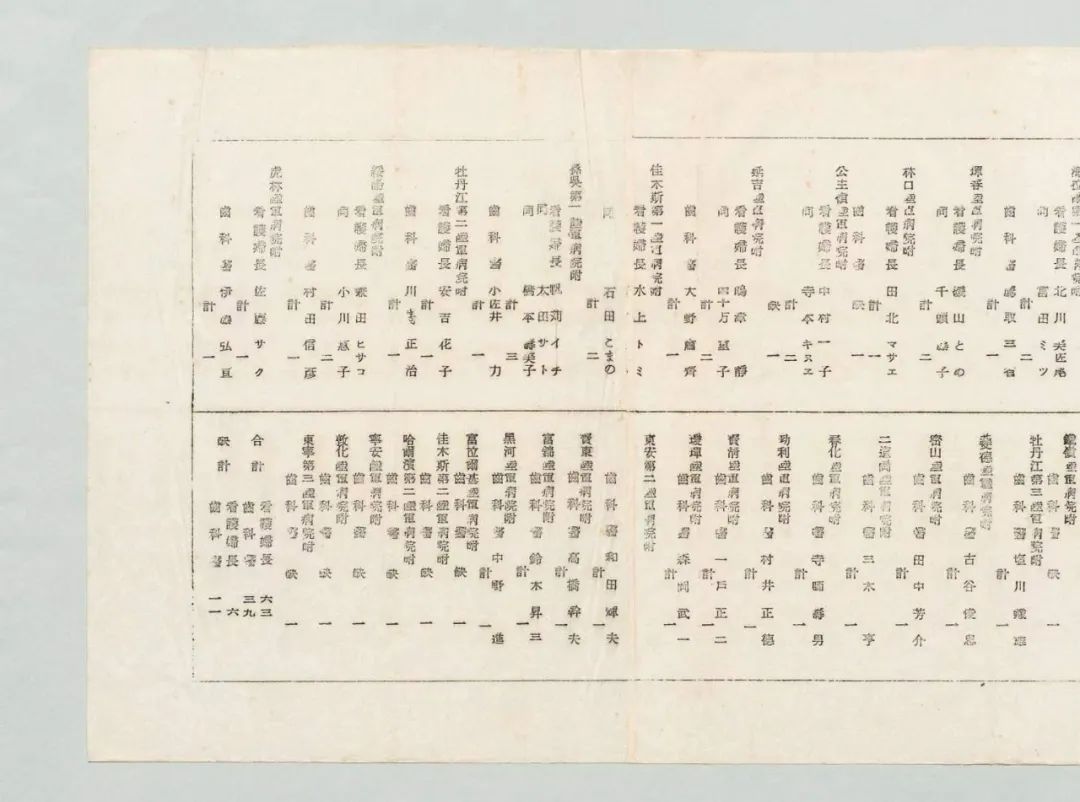 第一陸軍病院附
看護婦長 北川美佐尾
同 富田ミツ
計 二
齒科醫 取三
計 一
琿春陸軍病院附
看護婦長 磯山との
同 千頭 子
計 二
林口陸軍病院附
看護婦長 田北マサエ
計 一
齒科醫 缺 一
公主嶺陸軍病院附
看護婦長 中村一子
同 寺本キヌエ
計 二
缺 一
延吉陸軍病院附
看護婦長 嶋 靜
同 四十万 子
計 二
齒科醫 大野 齊
計 一
佳木斯第一陸軍病院附
看護婦長 水上トミ
同 石田こまの
計 二
孫吳第一陸軍病院附
看護婦長 イチ
同 太田サト
同 橋本壽美子
計 三
齒科醫 小佐井力
計 一
牡丹江第二陸軍病院附
看護婦長 安吉花子
計 一
齒科醫 川 正治
計 一
綏陽陸軍病院附
看護婦長 ヒサコ
同 小川惠子
計 二
齒科醫 村田信彦
計 一
虎林陸軍病院附
看護婦長 佐藤サク
計 一
齒科醫 伊藤弘亘
計 一
陸軍病院附
齒科醫 缺 一
牡丹江第三陸軍病院附
齒科醫 塩川 雄
計 一
陸軍病院附
齒科醫 古谷俊忠
計 一
密山陸軍病院附
齒科醫 田中芳介
計 一
二道崗陸軍病院附
齒科醫 三木 亨
計 一
春化陸軍病院附
齒科醫 寺師壽男
計 一
勃利陸軍病院附
齒科醫 村井正德
計 一
寶清陸軍病院附
齒科醫 一戸正二
計 一
璦琿陸軍病院附
齒科醫 森岡武一
計 一
東安第二陸軍病院附
齒科醫 和田輝夫
計 一
寶東陸軍病院附
齒科醫 高橋幹夫
計 一
富錦陸軍病院附
齒科醫 鈴木昇三
計 一
黑河陸軍病院附
齒科醫 中野 進
計 一
富拉爾基陸軍病院附
齒科醫 缺 一
佳木斯第二陸軍病院附
齒科醫 缺 一
哈爾濱第二陸軍病院附
齒科醫 缺 一
寧安陸軍病院附
齒科醫 缺 一
敦化陸軍病院附
齒科醫 缺 一
東寧第三陸軍病院附
齒科醫 缺 一
合計 看護婦長 六三
齒科醫 三九
缺計 看護婦長 六
齒科醫 一一